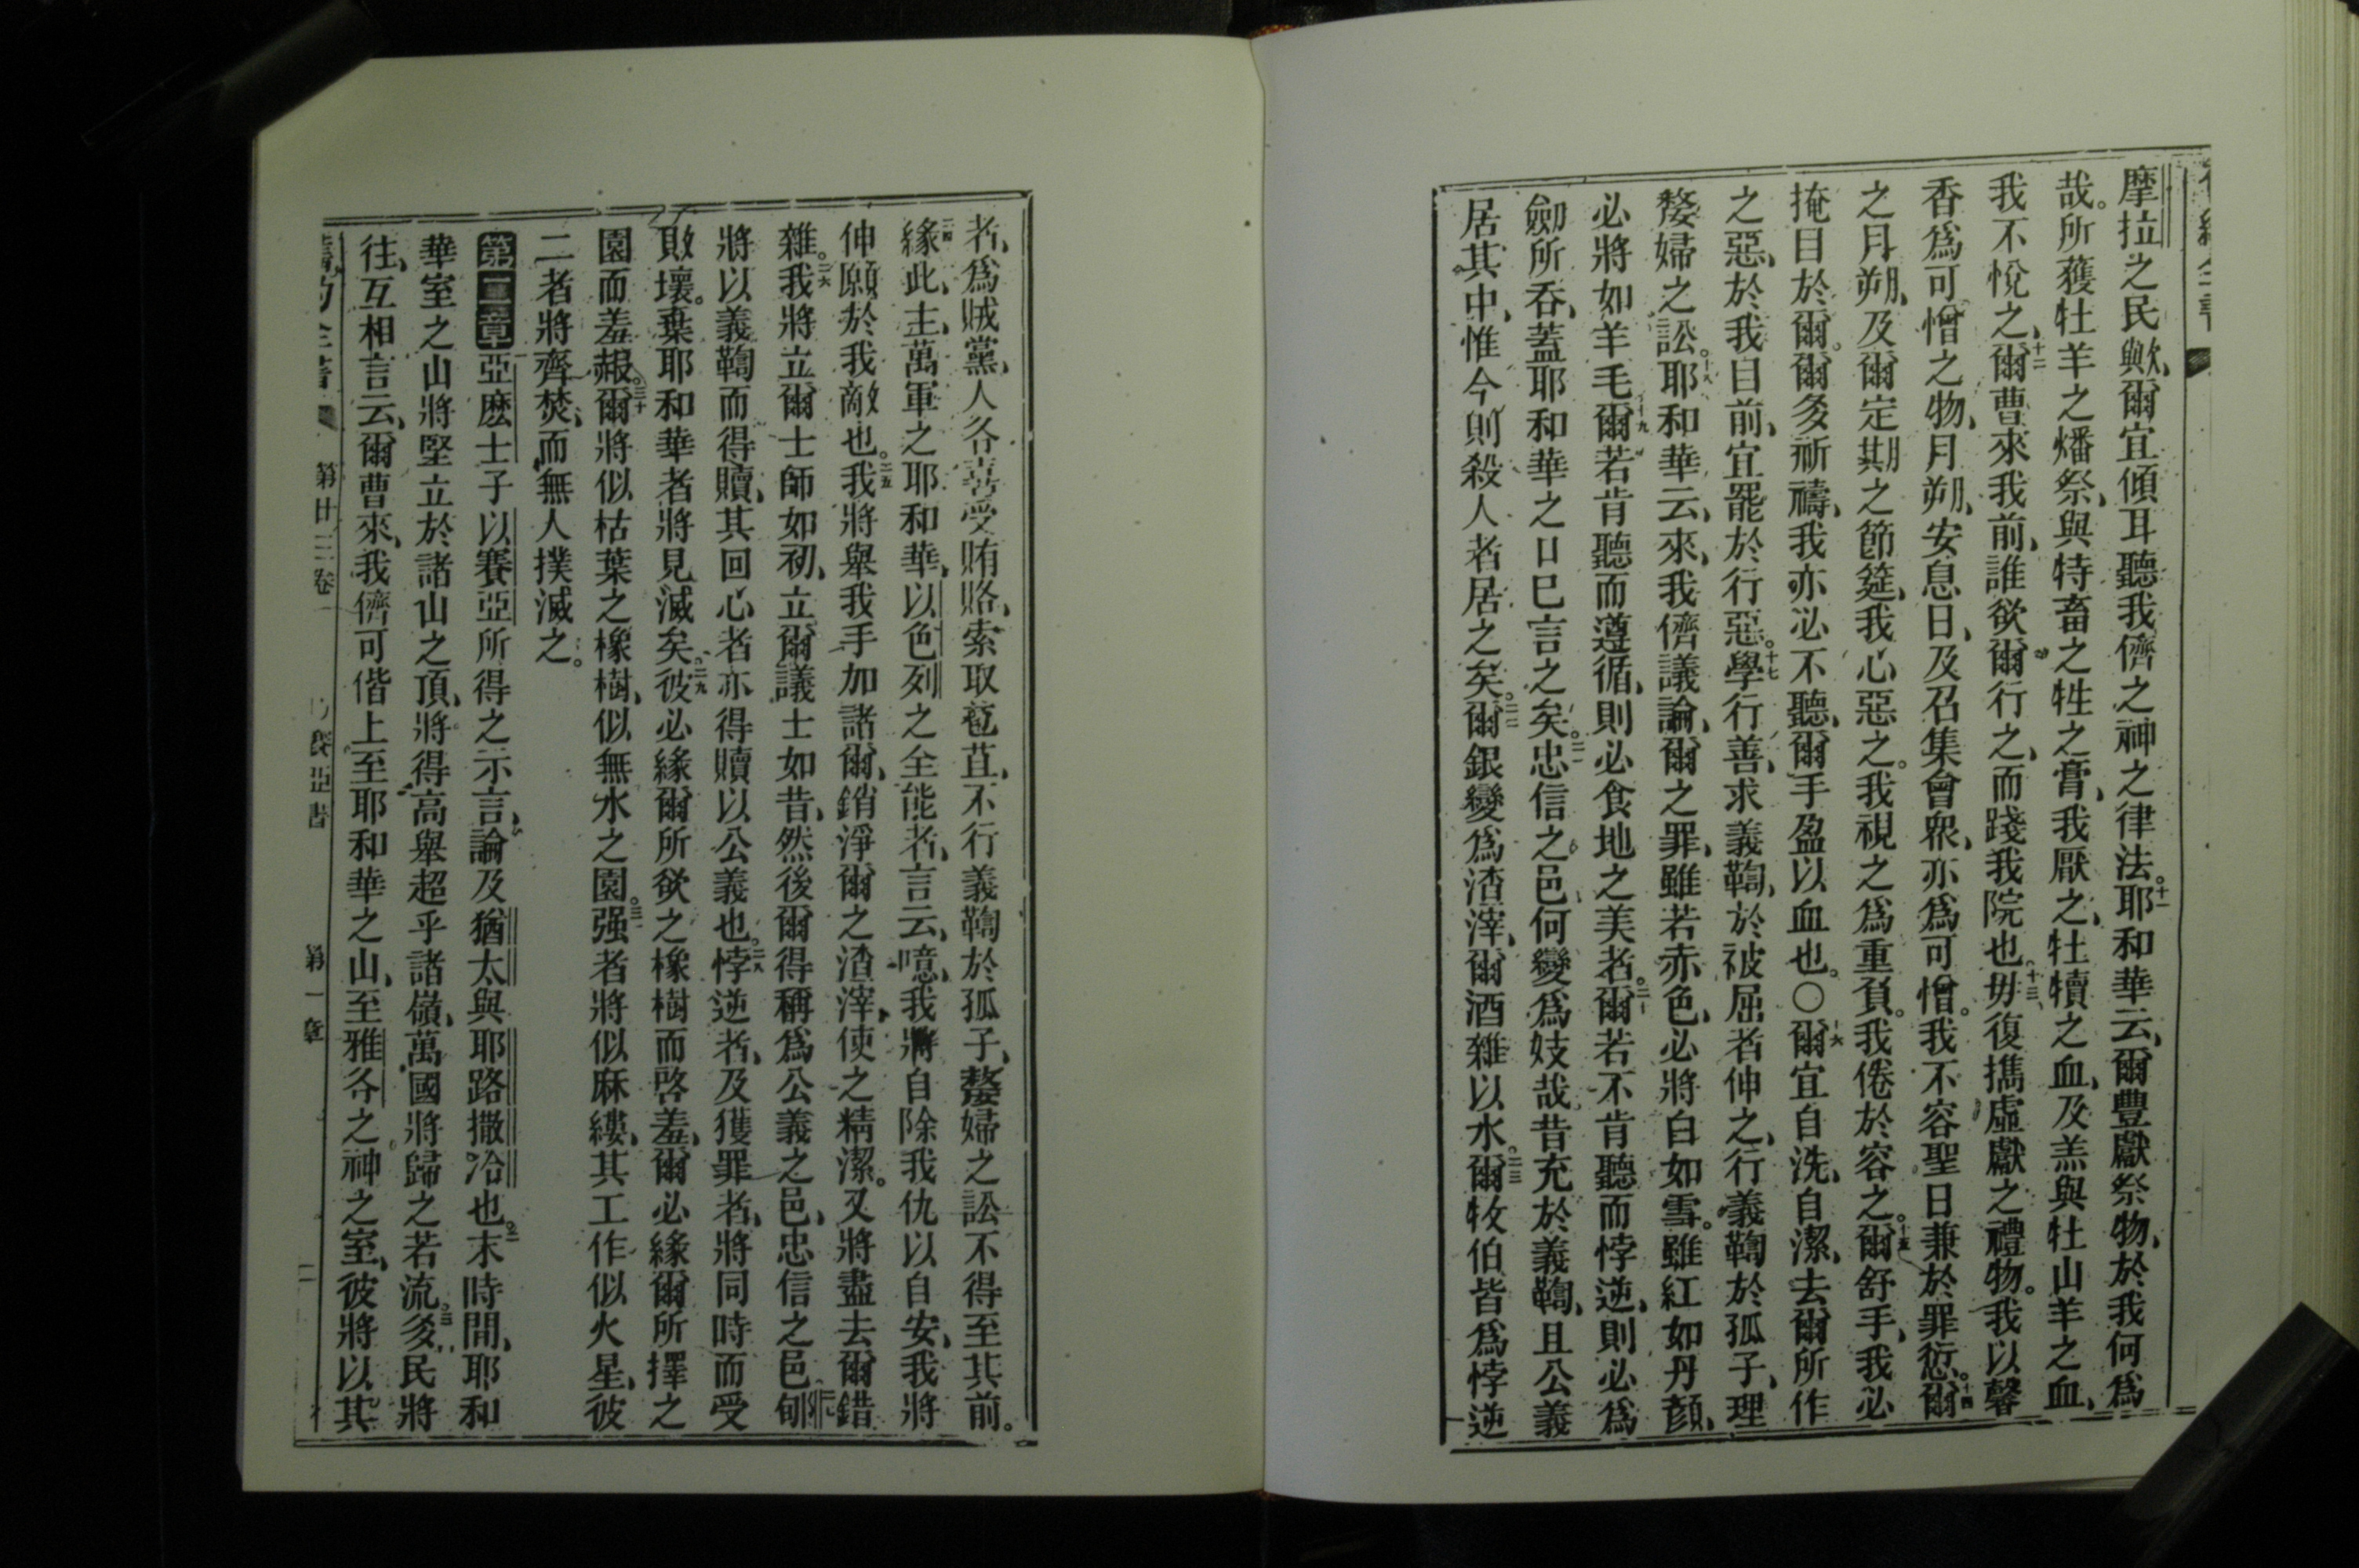 摩拉之民歟、爾宜傾耳聽我儕之神之律法。十一耶和華云、爾豐獻祭物、於我何爲
哉。所獲牡羊之燔祭、與特畜之牲之膏、我厭之、牡犢之血、及羔與牡山羊之血、
我不悅之、十二爾曹來我前、誰欲爾行之、而踐我院也。十三毋復攜虛獻之禮物。我以馨
香爲可憎之物、月朔、安息日、及召集會衆、亦爲可憎。我不容聖日兼於罪愆。十四爾
之月朔、及爾定期之節筵、我心惡之。我視之爲重負。我倦於容之。十五爾舒手、我必
掩目於爾。爾多祈禱、我亦必不聽、爾手盈以血也。〇十六爾宜自洗、自潔、去爾所作
之惡、於我目前、宜罷於行惡。十七學行善、求義鞫、於被屈者伸之、行義鞫於孤子、理
嫠婦之訟。十八耶和華云、來、我儕議論、爾之罪、雖若赤色、必將白如雪。雖紅如丹顏、
必將如羊毛。十九爾若肯聽而遵循、則必食地之美者。二十爾若不肯聽而悖逆、則必爲
劍所吞、蓋耶和華之口已言之矣。二一忠信之邑、何變爲妓哉、昔充於義鞫、且公義
居其中、惟今則殺人者居之矣。二二爾銀變爲渣滓、爾酒雜以水。二三爾牧伯皆爲悖逆
者、爲賊黨、人各喜受賄賂、索取苞苴、不行義鞫於孤子、嫠婦之訟不得至其前。
二四緣此、主、萬軍之耶和華、以色列之全能者、言云、噫、我將自除我仇以自安、我將
伸願於我敵也。二五我將舉我手加諸爾、銷淨爾之渣滓、使之精潔。又將盡去爾錯
雜。二六我將立爾士師如初、立爾議士如昔、然後爾得稱爲公義之邑、忠信之邑、二七郇
將以義鞫而得贖、其回心者亦得贖以公義也。二八悖逆者、及獲罪者、將同時而受
敗壞。棄耶和華者將見滅矣。二九彼必緣爾所欲之橡樹而啓羞、爾必緣爾所擇之
園而羞赧。三十爾將似枯葉之橡樹、似無水之園。三一强者將似麻縷、其工作似火星、彼
二者將齊焚、而無人撲滅之。
第二章亞麽士子以賽亞所得之示言、論及猶太與耶路撒冷也。二末時間、耶和
華室之山將堅立於諸山之頂、將得高舉超乎諸嶺、萬國將歸之若流。三多民將
往、互相言云、爾曹來、我儕可偕上至耶和華之山、至雅各之神之室、彼將以其
第廿三卷 第一章